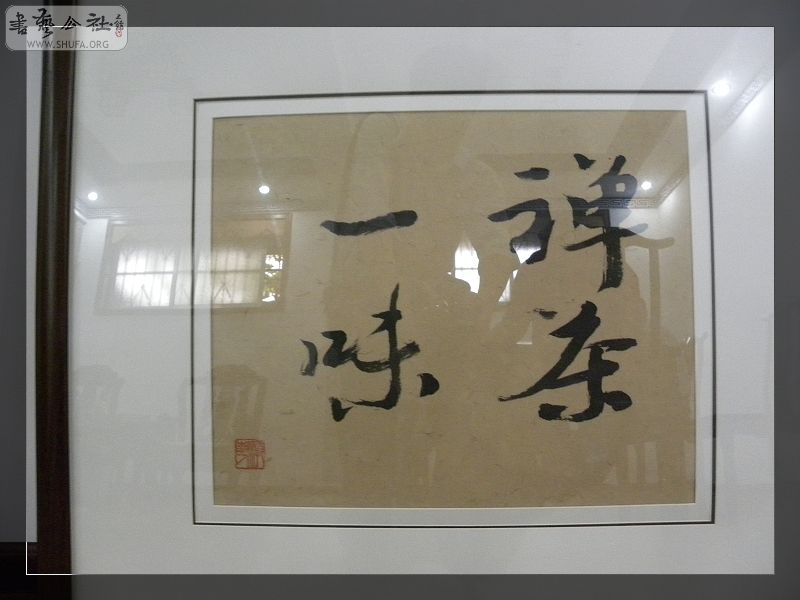 禅茶
一味
書藝公社
WWW.SHUFA.ORG